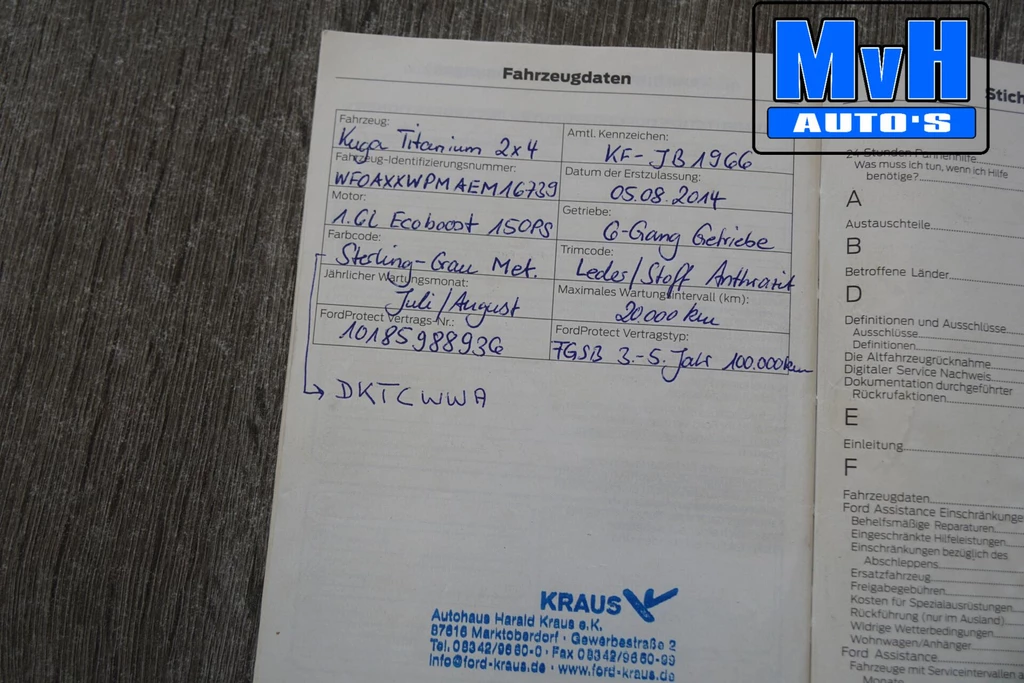 MvH
AUTO'S
Fahrzeugdaten
Fahrzeug:
Kuga Titanium 2x4
Amtl. Kennzeichen:
KF-JB1966
Fahrzeug-Identifizierungsnummer:
WF0AXXWPMAEM16739
Datum der Erstzulassung:
05.08.2014
Motor:
1.6L Ecoboost 150PS
Getriebe:
6-Gang Getriebe
Farbcode:
Sterling-Grau Met.
Trimcode:
Leder/Stoff Anthrazit
Jährlicher Wartungsmonat:
Juli/August
Maximales Wartungsintervall (km):
20000 km
FordProtect Vertrags-Nr.:
10185988936
FordProtect Vertragstyp:
FGSB 3.-5. Jahr 100.000km
DKTCWWA
KRAUS
Autohaus Harald Kraus e.K.
87616 Marktoberdorf · Gewerbestraße 2
Tel. 08342/9660-0 · Fax 08342/9660-99
info@ford-kraus.de · www.ford-kraus.de
Stich
24 Stunden Pannenhilfe
Was muss ich tun, wenn ich Hilfe
benötige?
A
Austauschteile
B
Betroffene Länder
D
Definitionen und Ausschlüsse
Ausschlüsse
Definitionen
Die Altfahrzeugrücknahme
Digitaler Service Nachweis
Dokumentation durchgeführter
Rückrufaktionen
E
Einleitung
F
Fahrzeugdaten
Ford Assistance Einschränkunge
Behelfsmäßige Reparaturen
Eingeschränkte Hilfeleistungen
Einschränkungen bezüglich des
Abschleppens
Ersatzfahrzeug
Freigabegebühren
Kosten für Spezialausrüstungen
Rückführung (nur im Ausland)
Widrige Wetterbedingungen
Wohnwagen/Anhänger
Ford Assistance
Fahrzeuge mit Serviceintervallen a
Monate